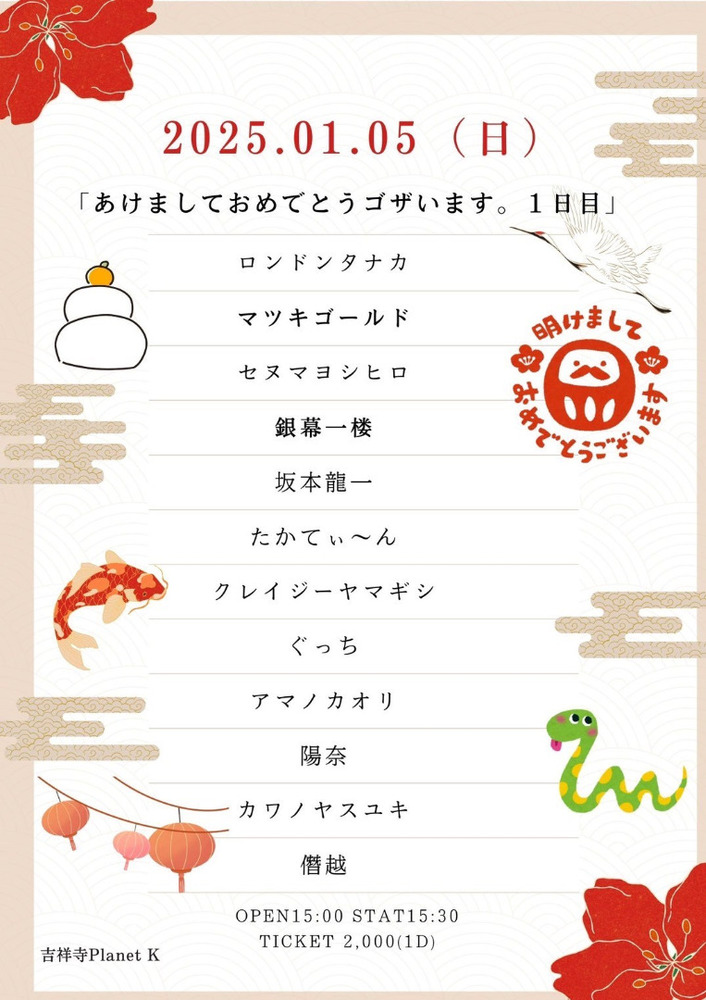 2025.01.05（日）
「あけましておめでとうゴザいます。１日目」
ロンドンタナカ
マツキゴールド
明けまして
おめでとうございます
セヌマヨシヒロ
銀幕一楼
坂本龍一
たかてぃ〜ん
クレイジーヤマギシ
ぐっち
アマノカオリ
陽奈
カワノヤスユキ
僭越
OPEN15:00 STAT15:30
TICKET 2,000(1D)
吉祥寺Planet K